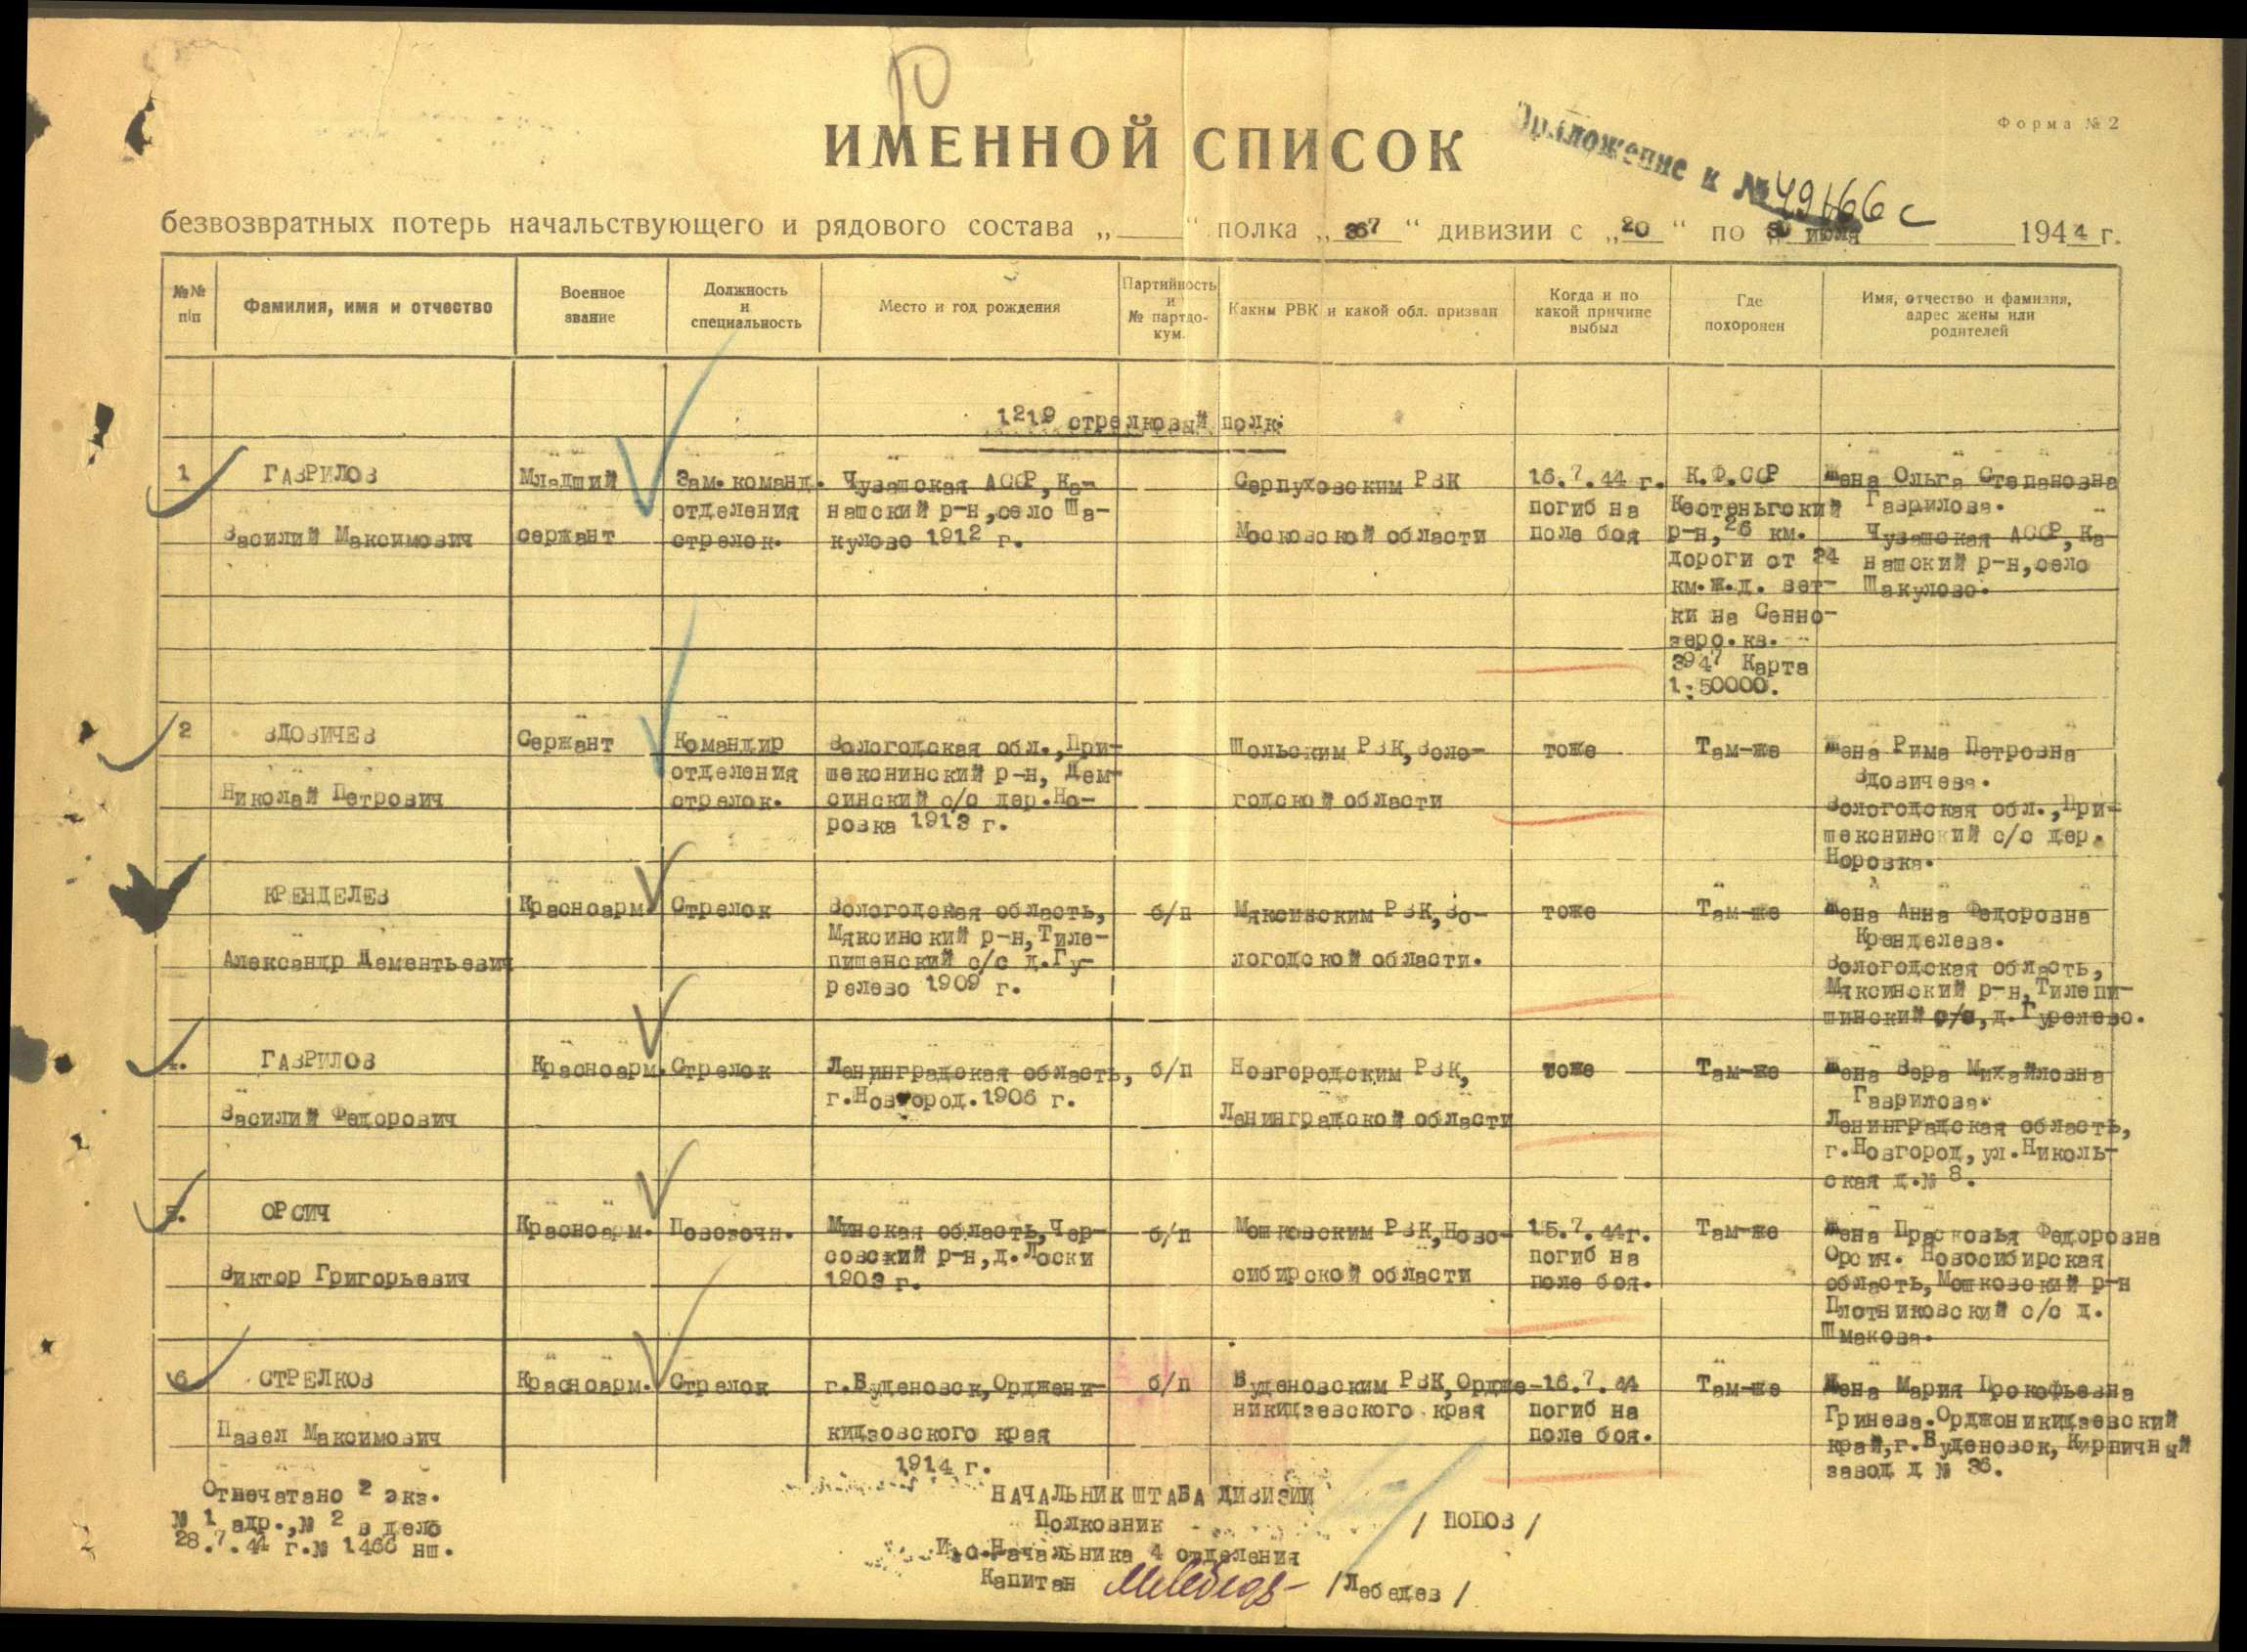 Форма № 2
ИМЕННОЙ СПИСОК
Приложение к № 49166с
безвозвратных потерь начальствующего и рядового состава „____“ полка „367“ дивизии с „20“ по „30 июля 1944 г.
№№ п/п
Фамилия, имя и отчество
Военное звание
Должность и специальность
Место и год рождения
Партийность и № партдокум.
Каким РВК и какой обл. призван
Когда и по какой причине выбыл
Где похоронен
Имя, отчество и фамилия, адрес жены или родителей
1219 стрелковый полк.
1
ГАВРИЛОВ
Василий Максимович
Младший
сержант
Зам.команд.
отделения
стрелок.
Чувашская АССР, Ка-
нашский р-н,село Ша-
кулово 1912 г.
Серпуховским РВК
Московской области
16.7.44 г.
погиб на
поле боя
К.Ф.ССР
Кестеньгский
р-н,26 км.
дороги от 24
км.ж.д. вет-
ки на Сенно-
зеро.кв.
3947 Карта
1:50000.
Жена Ольга Степановна
Гаврилова.
Чувашская АССР, Ка-
нашский р-н,село
Шакулово.
2
ВДОВИЧЕВ
Николай Петрович
Сержант
Командир
отделения
стрелок.
Вологодская обл.,При-
шекснинский р-н, Дем-
синский с/с дер.Но-
ровка 1913 г.
Шольским РВК,Воло-
годской области
тоже
Там-же
Жена Рима Петровна
Вдовичева.
Вологодская обл.,При-
шекснинский с/с дер.
Норовка.
КРЕНДЕЛЕВ
Александр Дементьевич
Красноарм.
Стрелок
Вологодская область,
Мяксинский р-н,Тиле-
пишенский с/с д.Гу-
релево 1909 г.
б/п
Мяксинским РВК,Во-
логодской области.
тоже
Там-же
Жена Анна Федоровна
Кренделева.
Вологодская область,
Мяксинский р-н,Тилепи-
шинский с/с,д.Гурелево.
4.
ГАВРИЛОВ
Василий Федорович
Красноарм.
Стрелок
Ленинградская область,
г.Новгород.1906 г.
б/п
Новгородским РВК,
Ленинградской области
тоже
Там-же
Жена Вера Михайловна
Гаврилова.
Ленинградская область,
г.Новгород,ул.Николь-
ская д.№ 8.
5.
ОРСИЧ
Виктор Григорьевич
Красноарм.
Повозочн.
Минская область,Чер-
совский р-н,д.Лоски
1903 г.
б/п
Мошковским РВК,Ново-
сибирской области
15.7.44г.
погиб на
поле боя.
Там-же
Жена Прасковья Федоровна
Орсич. Новосибирская
область,Мошковский р-н
Плотниковский с/с д.
Шмакова.
6
СТРЕЛКОВ
Павел Максимович
Красноарм.
Стрелок
г.Буденовск,Орджени-
кидзовского края
1914 г.
б/п
Буденовским РВК,Ордже-
никидзевского края
16.7.44
погиб на
поле боя.
Там-же
Жена Мария Прокофьевна
Гринева.Орджоникидзевский
край,г.Буденовск,Кирпичный
завод д № 36.
Отпечатано 2 экз.
№ 1 адр.,№ 2 в дело
28.7.44 г.№ 1466 нш.
НАЧАЛЬНИК ШТАБА ДИВИЗИИ
Полковник / ПОПОВ /
И.о.Начальника 4 отделения
Капитан /Лебедев /